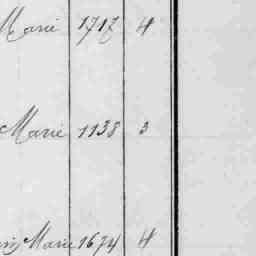 Marie 1717 4
Marie 1138 3
Marie 1674 4